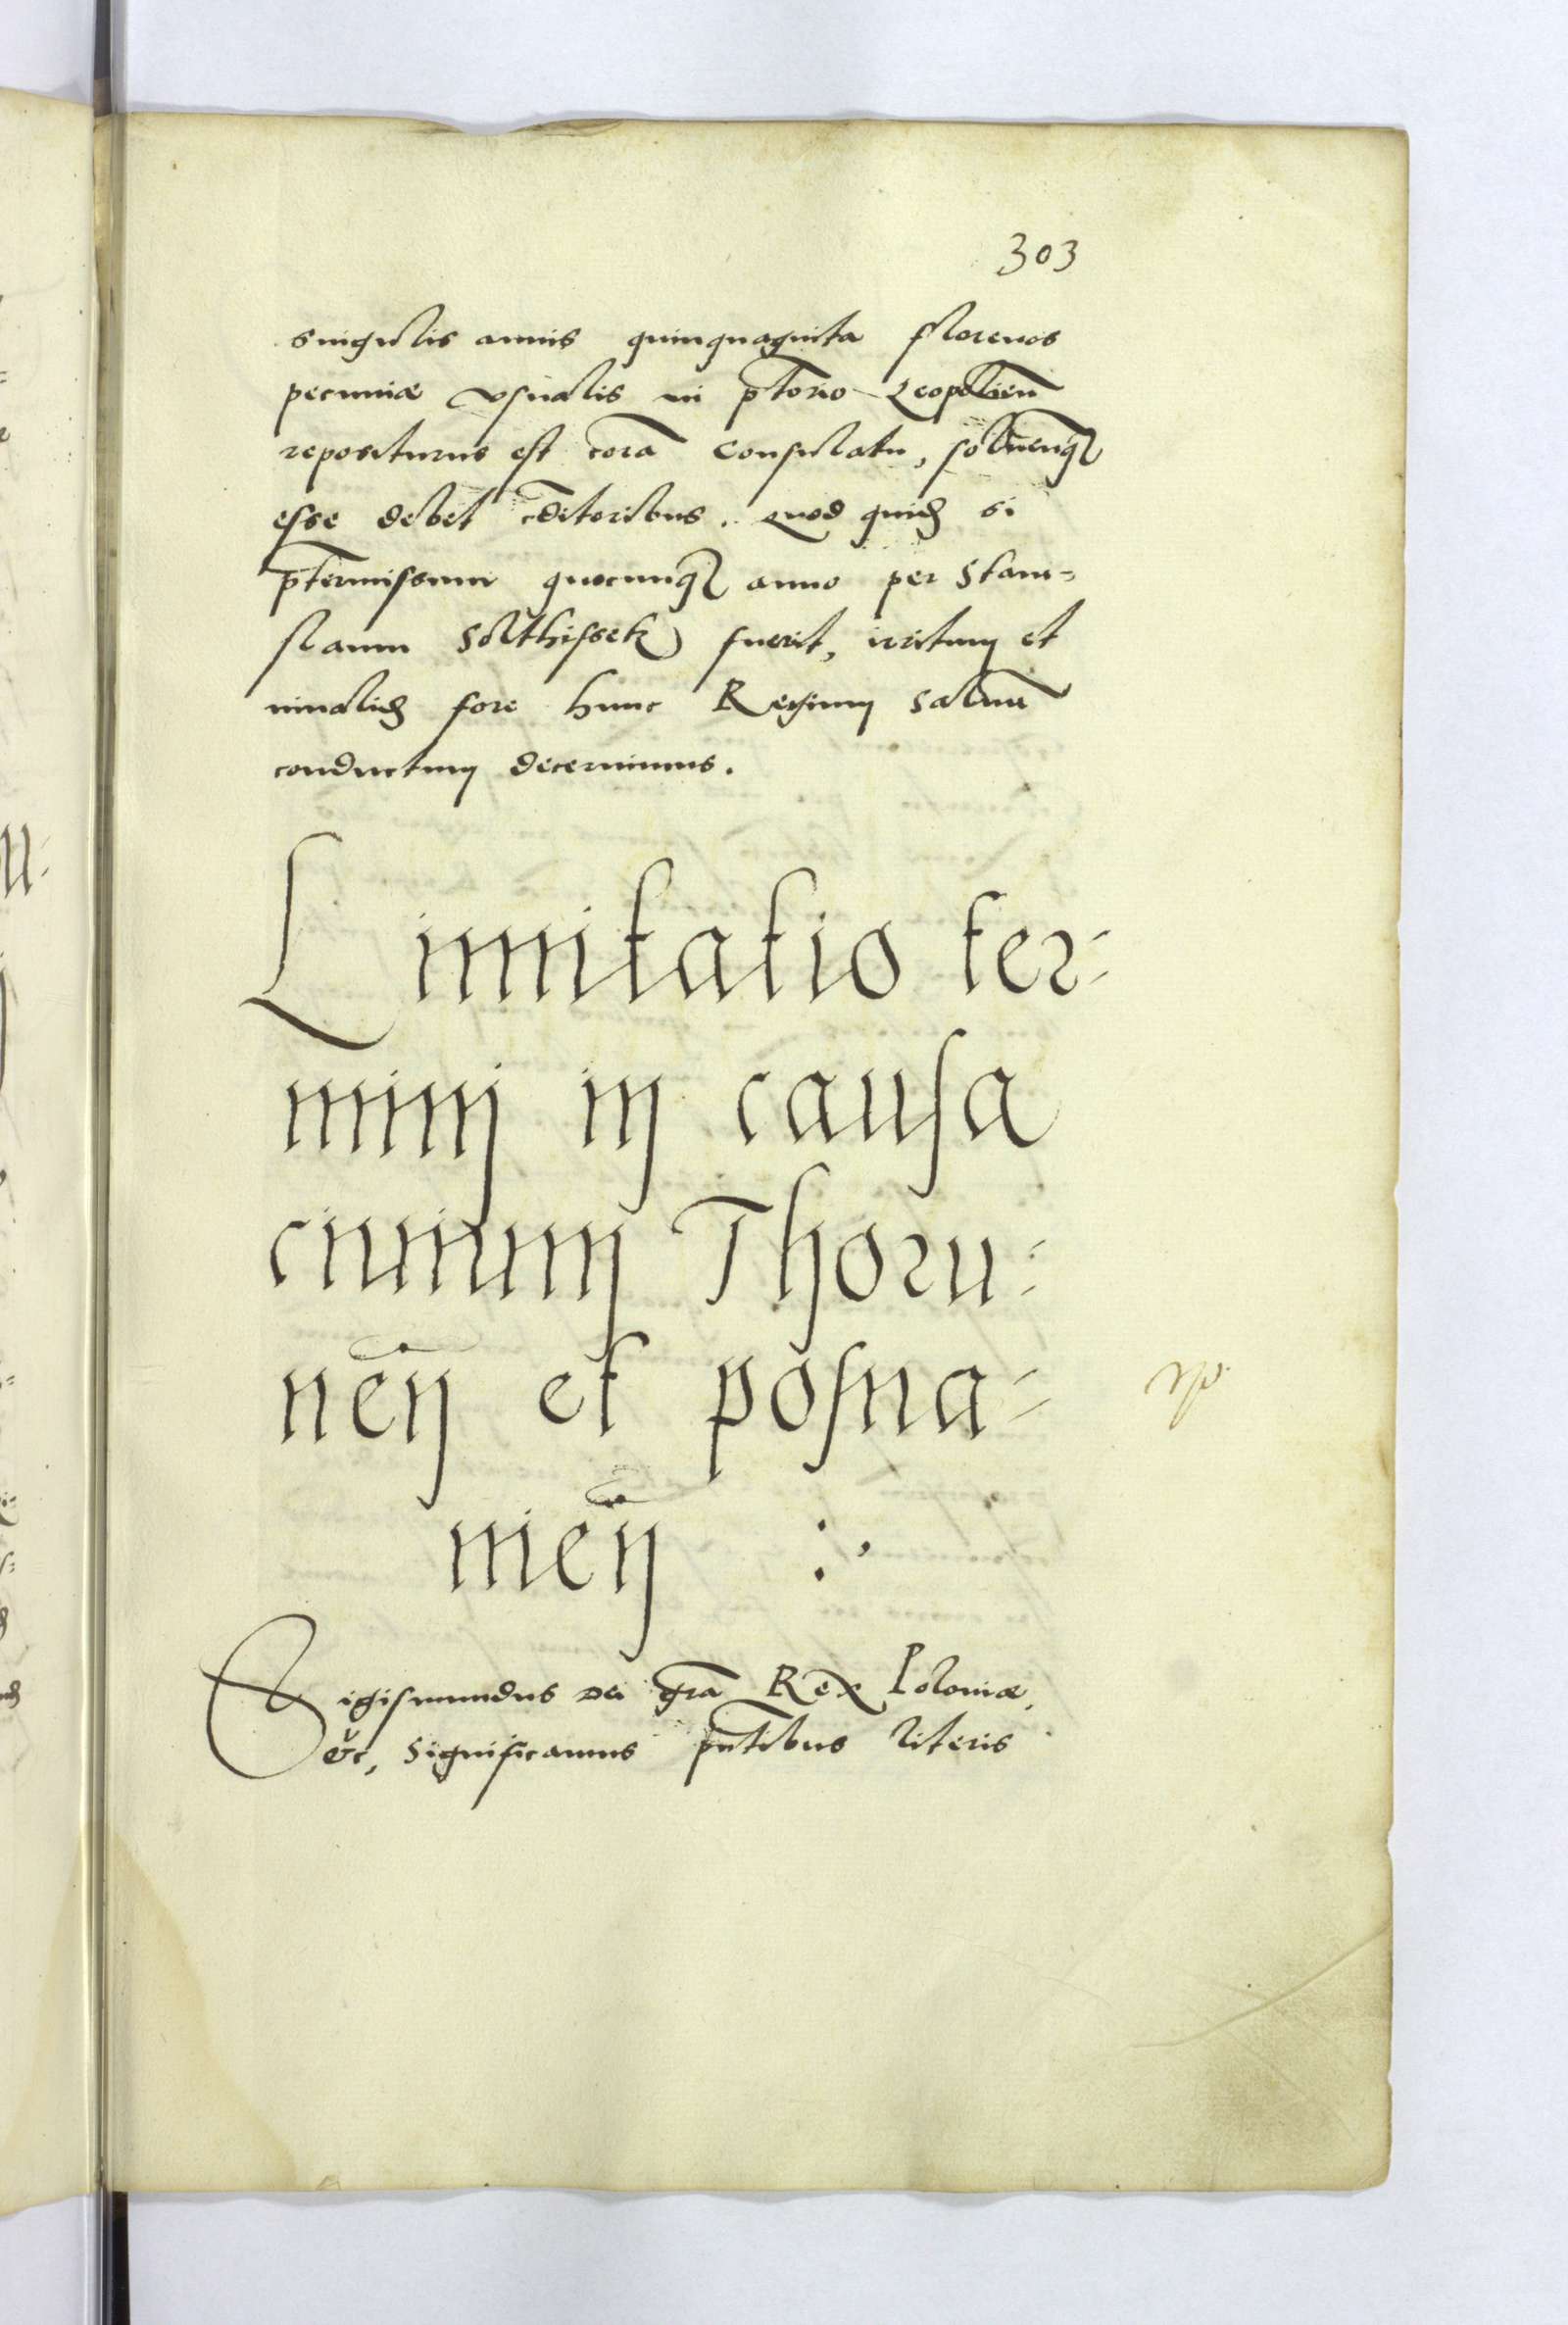 303
singulis annis quinquaginta florenos
pecuniæ vsualis in p̄torio Leopolien̄
repositurus est corā Consulatu, soluenq̨
esse debet c̄ditoribus. Quod quid̨ si
p̄termissum quocunq̨ anno per Stani=
slaum Solthissek fuerit, irritum et
inualid̨ fore hunc Regium saluū
conductum decernimus.
Limitatio ter=
minj in causa
ciuium Thoru=
nēn et posna=
niēn :,
Sigismundus Dei grā Rex Poloniæ,
&c, Significamus pn̄tibus literis